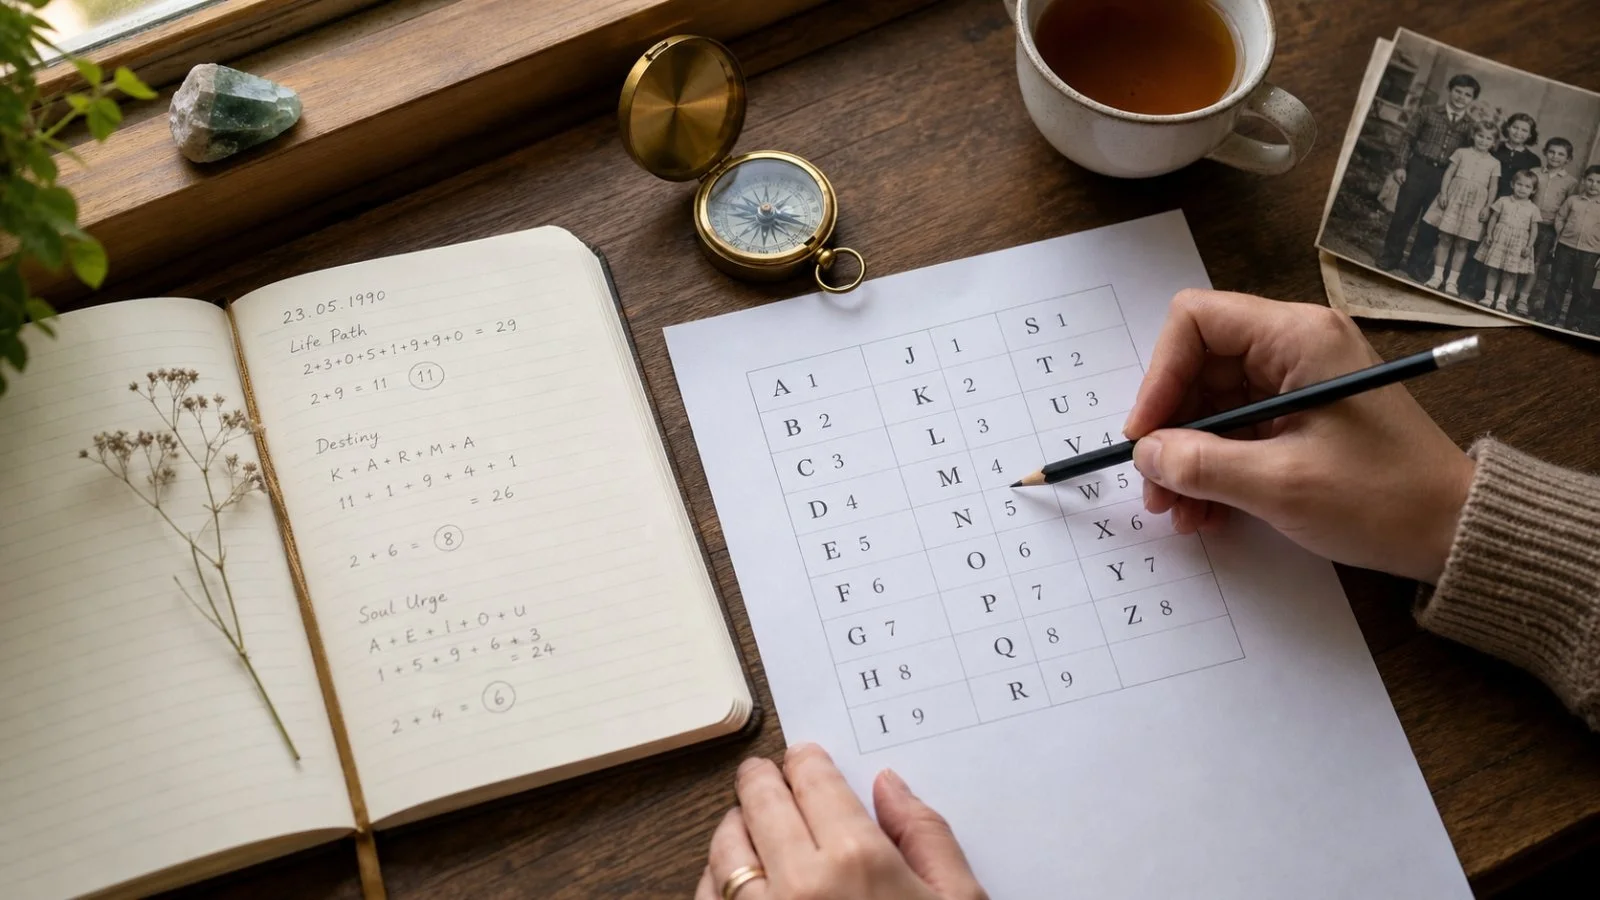 23.05.1990
Life Path
2+3+0+5+1+9+9+0 = 29
2+9 = 11 11
Destiny
K + A + R + M + A
11 + 1 + 9 + 4 + 1
= 26
2 + 6 = 8
Soul Urge
A + E + I + O + U
1 + 5 + 9 + 6 + 3
= 24
2 + 4 = 6
A 1 J 1 S 1
B 2 K 2 T 2
C 3 L 3 U 3
D 4 M 4 V 4
E 5 N 5 W 5
F 6 O 6 X 6
G 7 P 7 Y 7
H 8 Q 8 Z 8
I 9 R 9